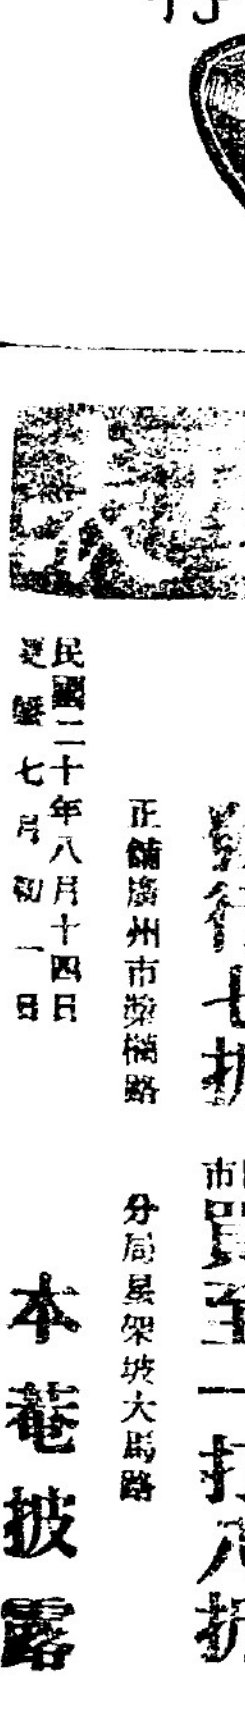 行七折　市買至一打八折
正舖廣州市漿欄路　分局星架坡大馬路
民國二十年八月十四日
夏曆七月初一日　本菴披露